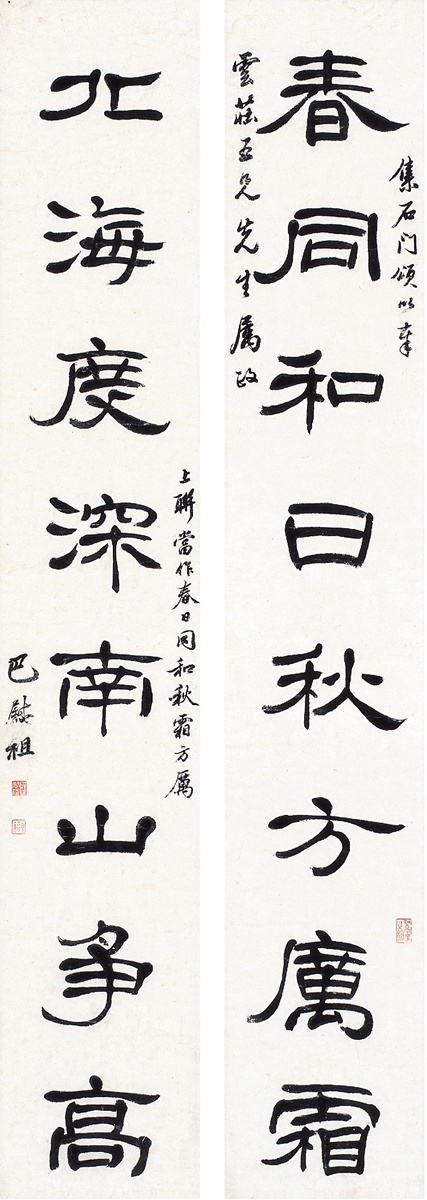 集石門頌以奉
春同和日秋方厲霜
雲莊五兄先生屬政
上聯當作春日同和秋霜方厲
北海度深南山爭高
巴慰祖